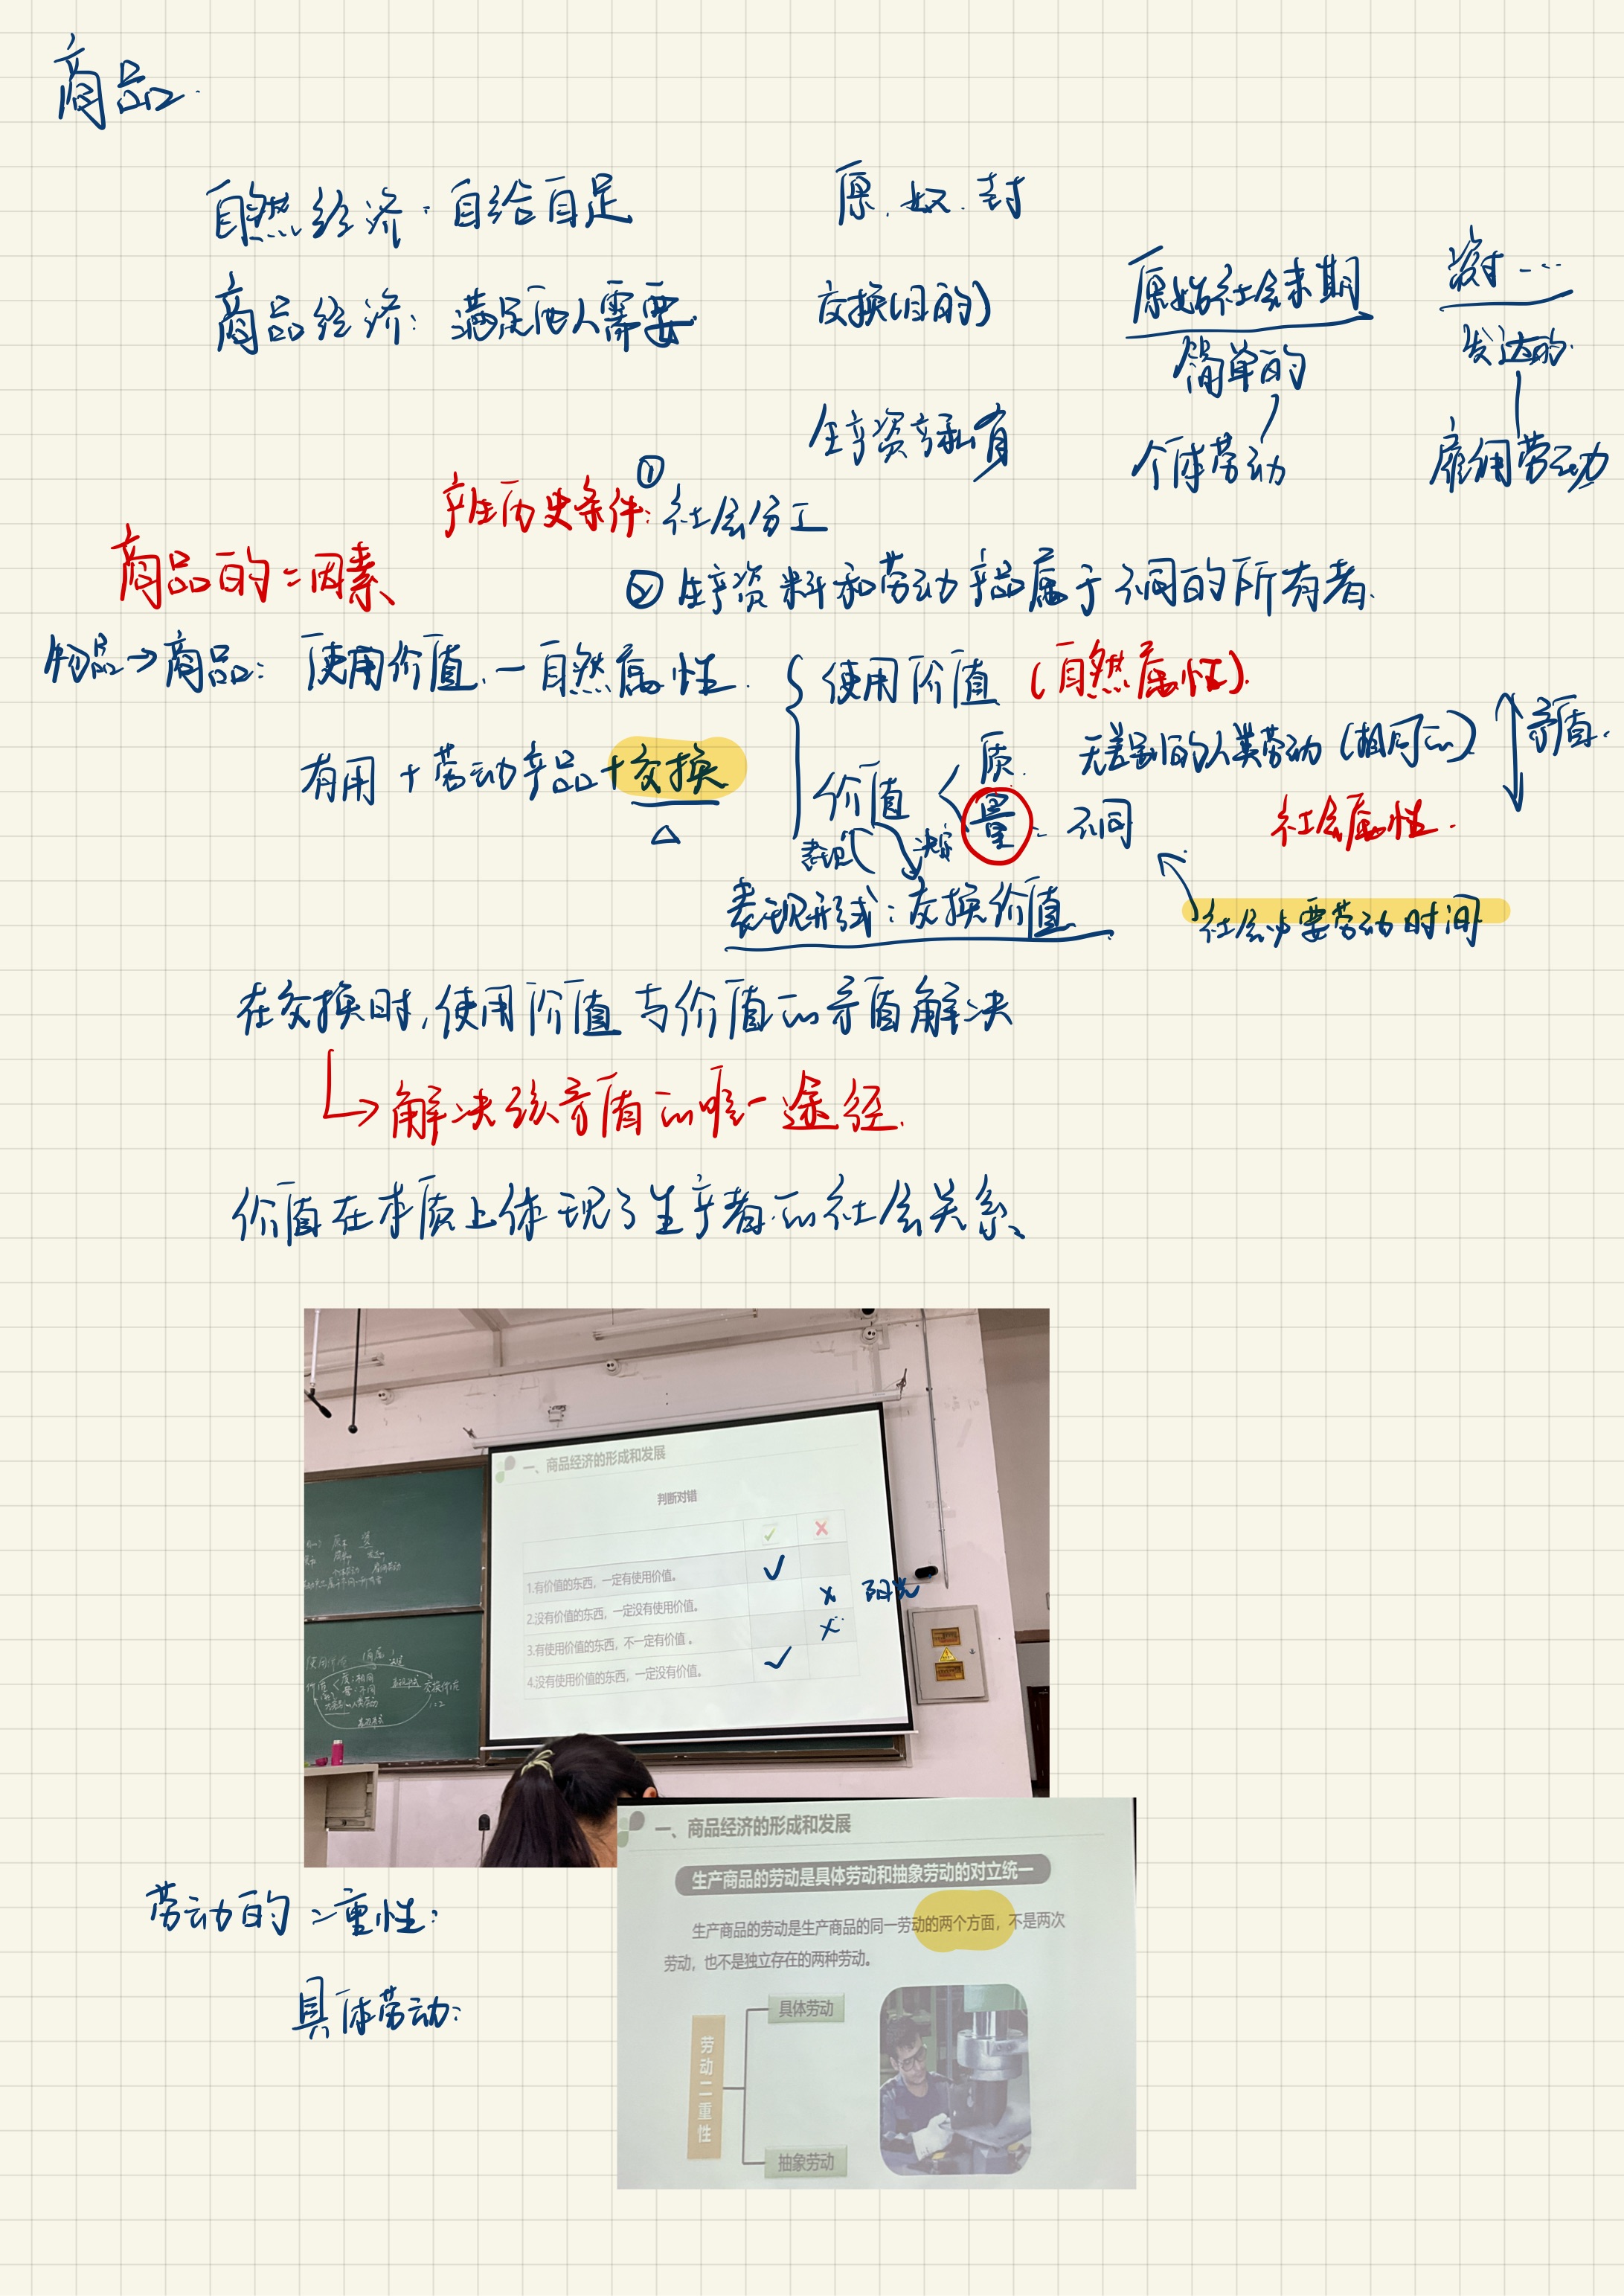 商品.
自然经济:自给自足 原.奴.封
商品经济: 满足他人需要. 交换(目的) 原始社会末期
简单的 发达的.
生产资产私有 个体劳动 雇佣劳动
产生历史条件: ① 社会分工
商品的二因素 ② 生产资料和劳动产品属于不同的所有者.
物品→商品: 使用价值.—自然属性. 使用价值 (自然属性).
矛盾.
有用 + 劳动产品 + 交换 价值 质. 无差别的人类劳动 (相同的)
量. 不同 社会属性.
表现 决定
表现形式: 交换价值 社会必要劳动时间
在交换时,使用价值与价值的矛盾解决
解决该矛盾的唯一途径.
价值在本质上体现了生产者的社会关系、
一、商品经济的形成和发展
判断对错
✓ ✗
1.有价值的东西,一定有使用价值。 ✓
2.没有价值的东西,一定没有使用价值。 × 阳光
3.有使用价值的东西,不一定有价值 。 ×
4.没有使用价值的东西,一定没有价值。 ✓
一、商品经济的形成和发展
生产商品的劳动是具体劳动和抽象劳动的对立统一
生产商品的劳动是生产商品的同一劳动的两个方面,不是两次
劳动,也不是独立存在的两种劳动。
劳动的二重性:
具体劳动:
具体劳动
劳动二重性
抽象劳动